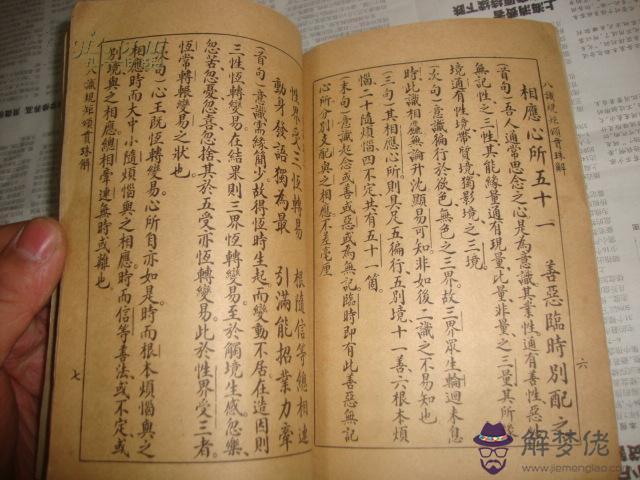 八識規矩頌貫珠解
相應心所五十一　善惡臨時別配之
(首句)吾人通常思念之心是為意識其業性通有善性惡性
無記性之三性其能緣量通有現量比量非量之三量其所緣
境通有性境帶質境獨影境之三境
(次句)意識徧行於欲色無色之三界故三界眾生輪迴未息
時此識相應無論升沈顯易可知非如後二識之不易知也
(三句)其相應心所則具足五徧行五別境十一善六根本煩
惱二十隨煩惱四不定共有五十一箇
(末句)意識起念或善或惡或為無記臨時即有此善惡無記
心所分別支配與之相應不差毫厘
六
性界受三恆轉易　根隨信等總相連
動身發語獨為最　引滿能招業力牽
(首句)意識需緣簡少故得恆時生起而變動不居在造因則
三性恆轉變易在結果則三界恆轉變易至於觸境生感忽樂
忽苦忽憂忽喜忽捨其於五受亦恆轉變易此於性界受三者
恆常轉轉變易之狀也
句)心王既恆轉變易心所自亦如是時而根本煩惱與之
相應時而大中小隨煩惱與之相應時而信等善法或不定或
別境與之相應總相牽連無時或離也
八識規矩頌貫珠解
七
解梦佬
www.jiemenglao.com